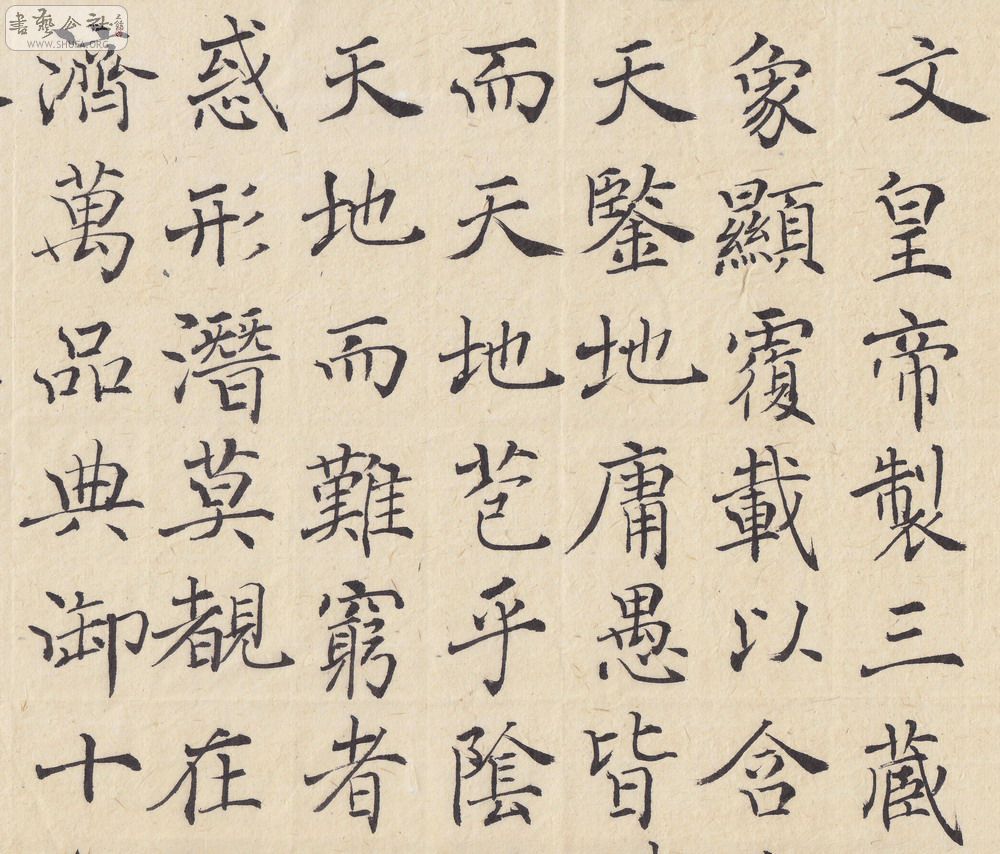 文皇帝製三蔵
象顯覆載以含
天鑒地庸愚皆
而天地苞乎陰
天地而難窮者
惑形潛莫覩在
濟萬品典御十
書藝公社
WWW.SHUFA.ORG